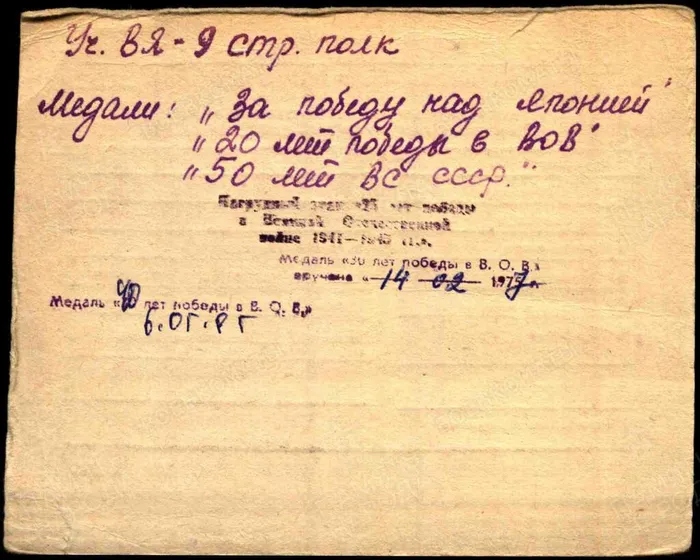 Уч. ВЯ - 9 стр. полк
Медали: „За победу над Японией"
„20 лет победы в ВОВ"
„50 лет ВС СССР."
Нагрудный знак «25 лет победы
в Великой Отечественной
войне 1941—1945 гг.».
Медаль «30 лет победы в В. О. В.»
вручена «14 02 1977 г.
Медаль «40 лет победы в В. О. В.»